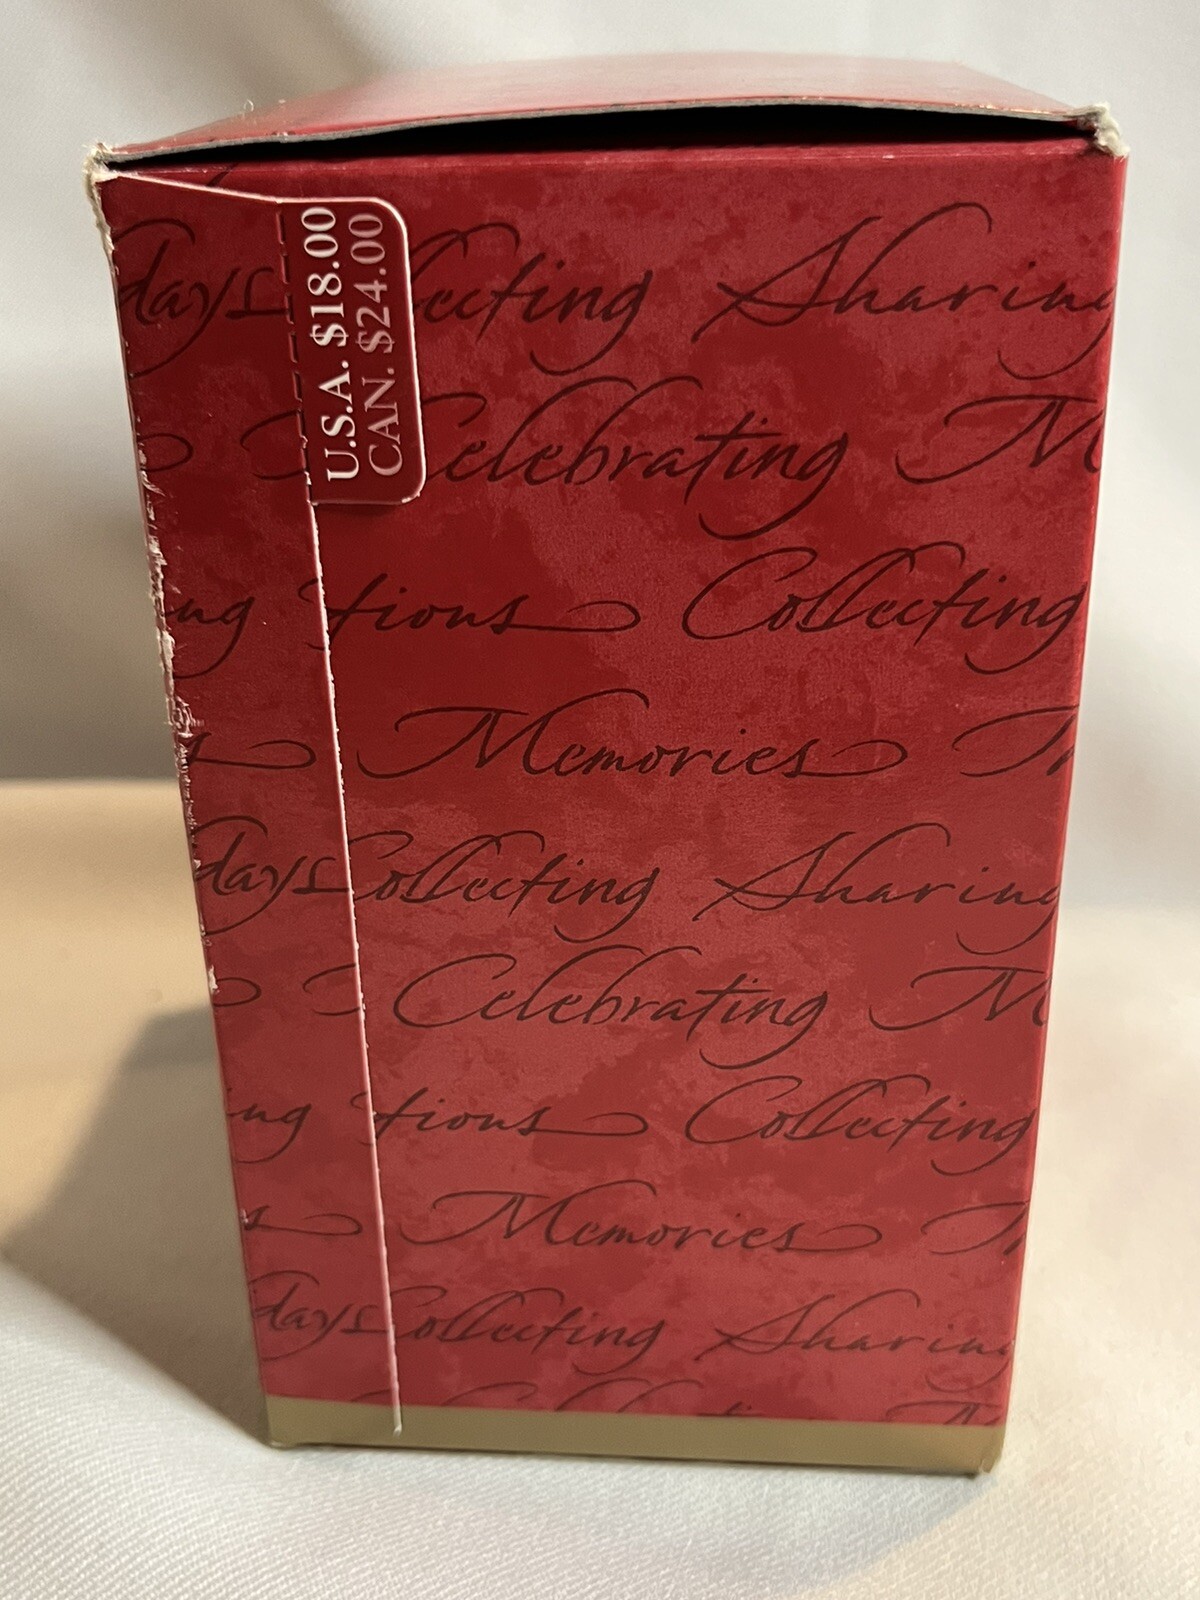 U.S.A. $18.00
CAN. $24.00
days Collecting Sharing
Celebrating M
ing tions Collecting
s Memories
days Collecting Sharing
Celebrating M
ing tions Collecting
s Memories
days Collecting Sharing